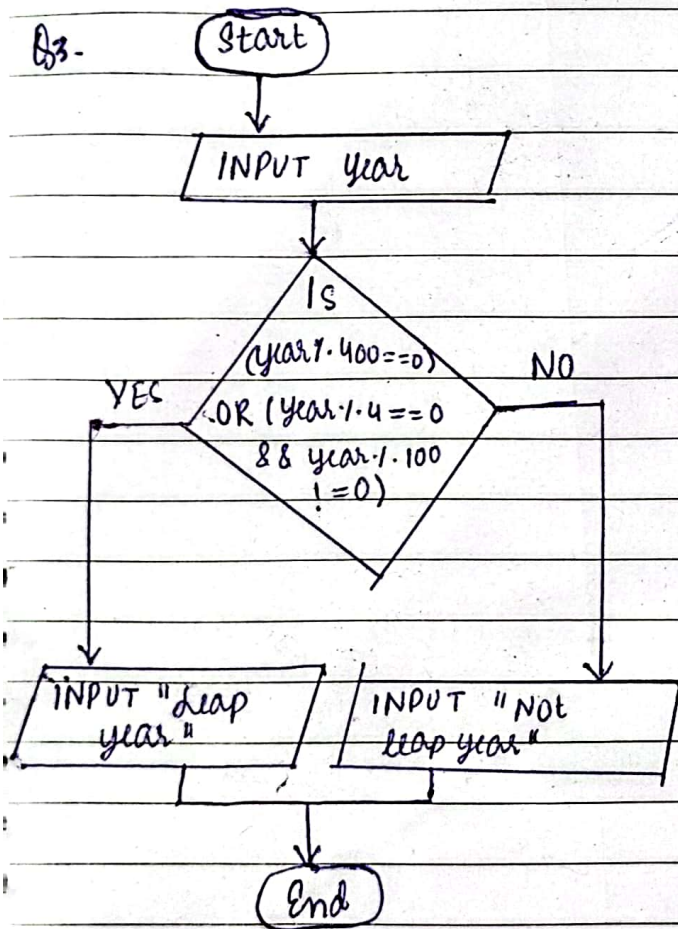 Q3-
Start
INPUT year
IS
(year%400==0)
YES
NO
OR (year%4==0
&& year%100
!=0)
INPUT "Leap
year"
INPUT "Not
leap year"
End